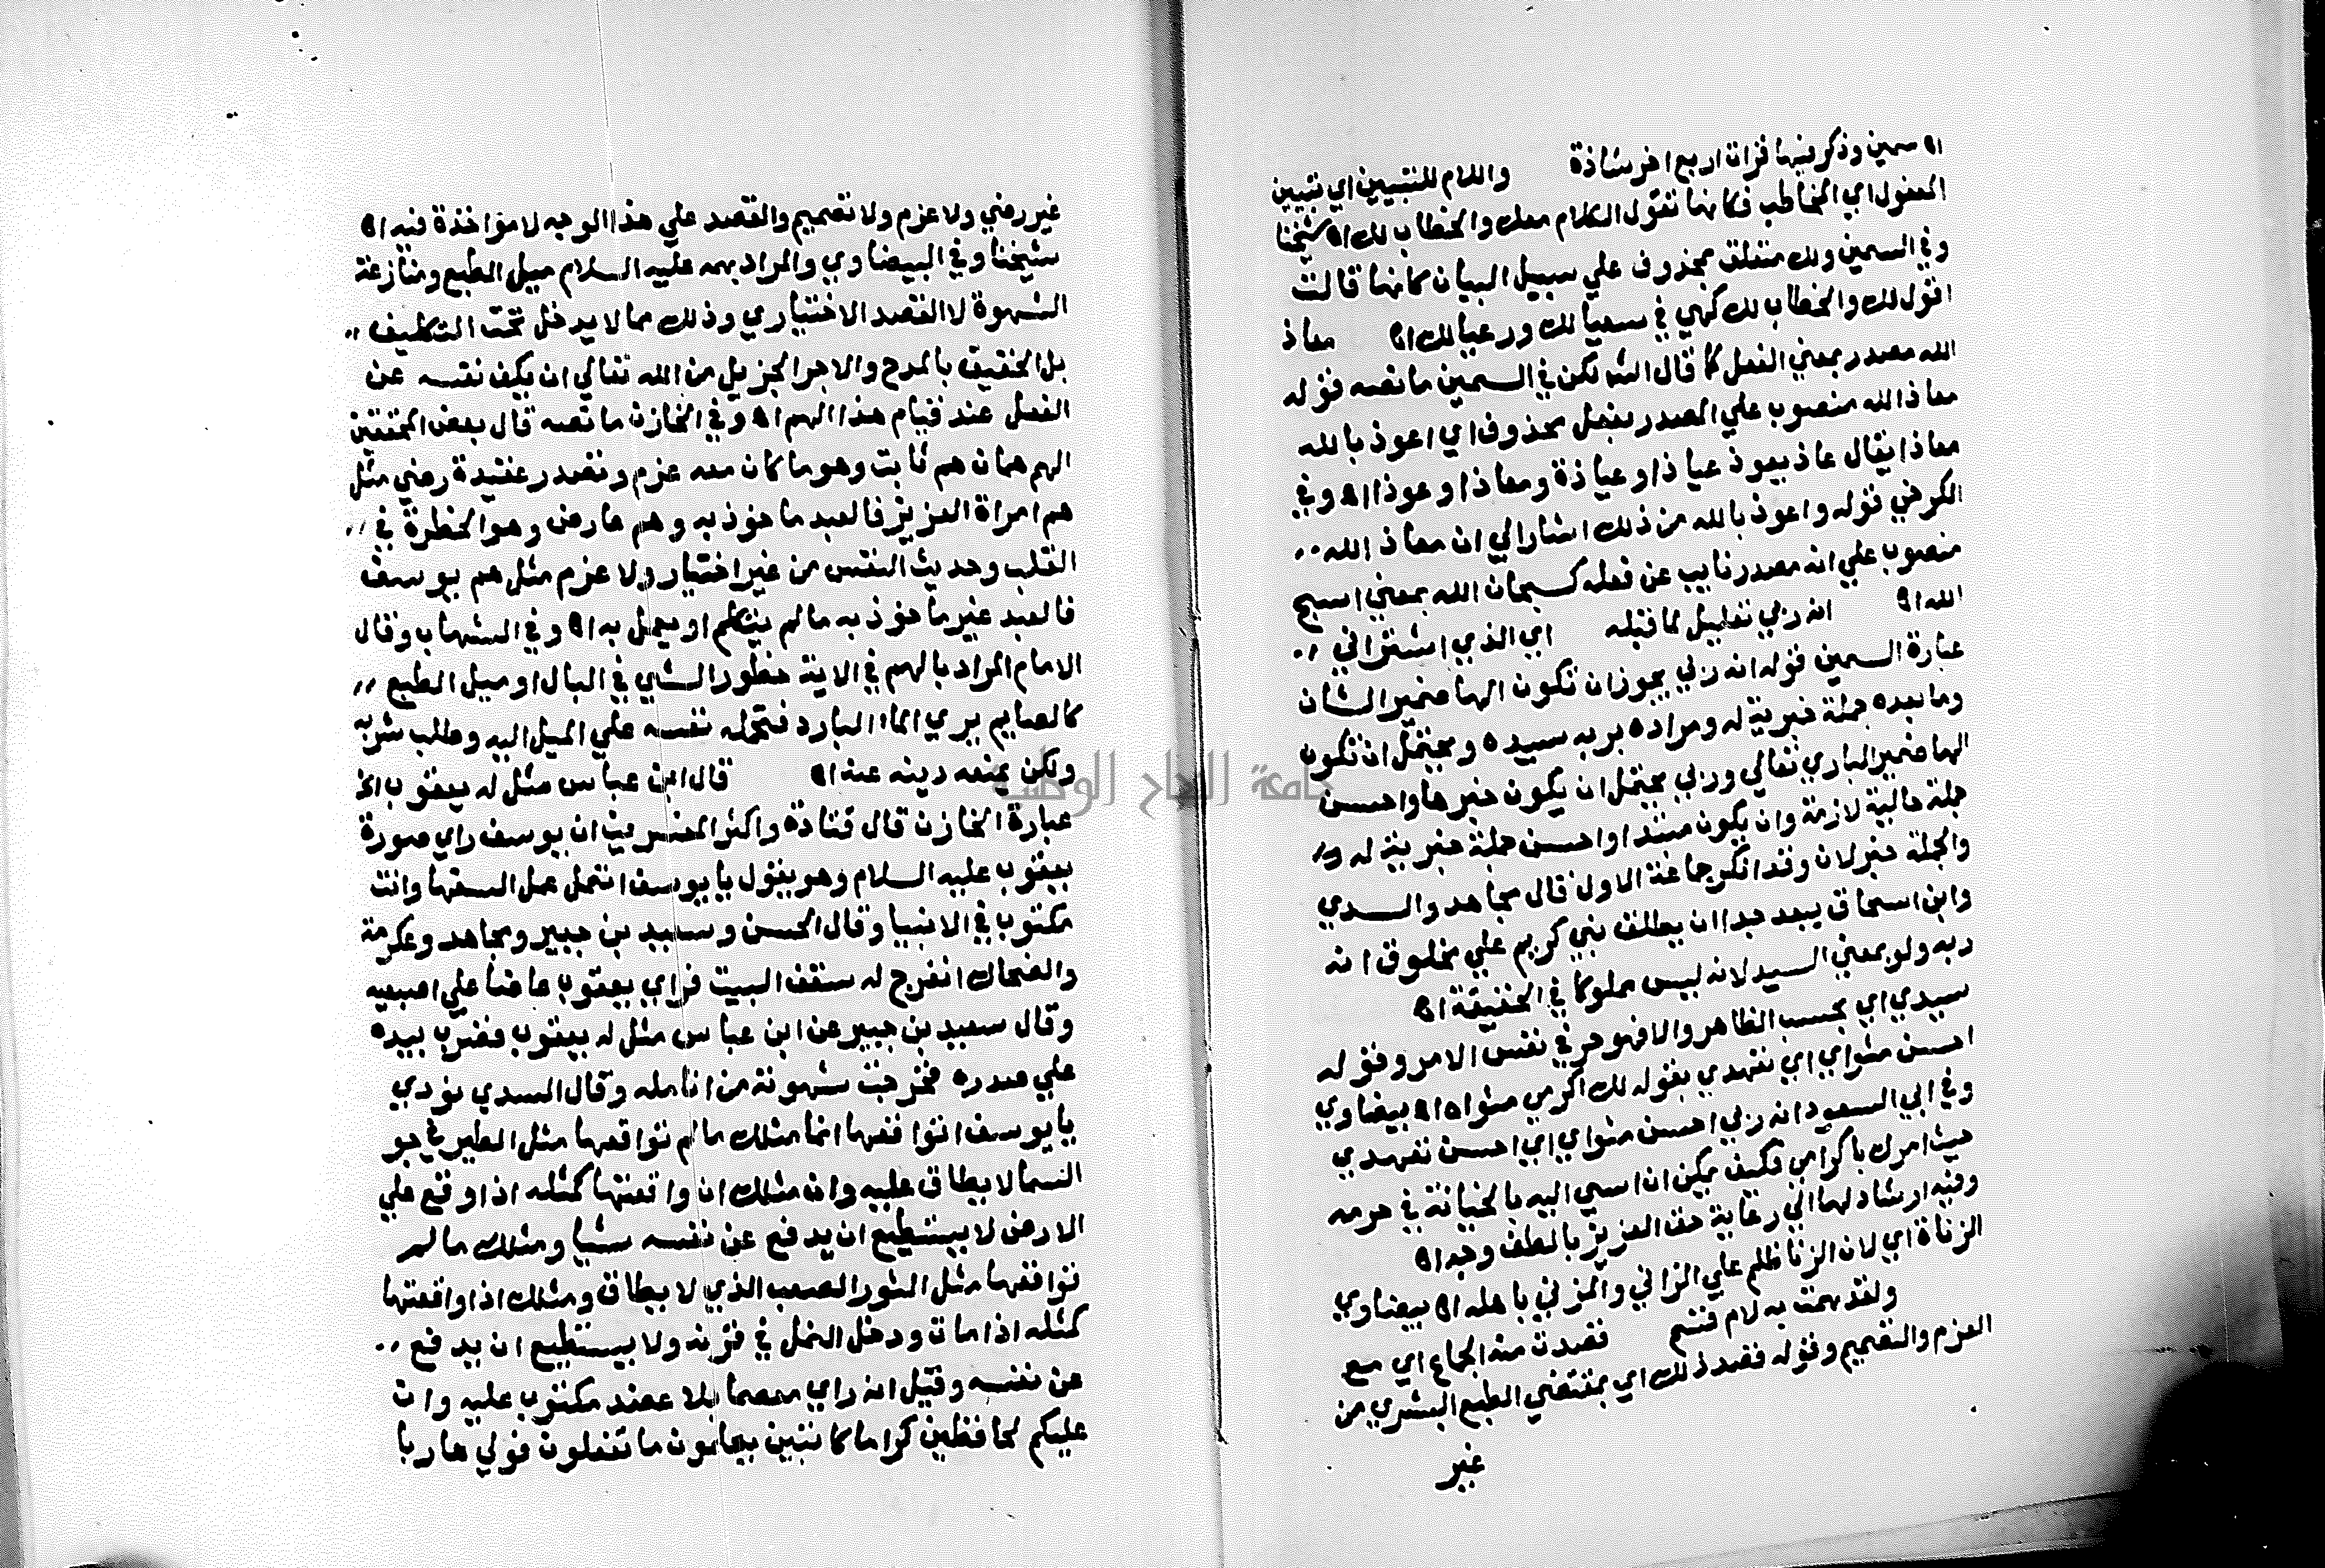 اه سمين وذكر فيها قراة اربع اخر شاذة واللام للتبيين اي تبيين
المفعول اي المخاطب فكانها تقول الكلام معك والخطاب لك اه شيخنا
وفي السمين ولك متعلق بمحذوف علي سبيل البيان كانها قالت
اقول لك والخطاب لك كهي في سقيا لك ورعيا لك اه معاذ
الله مصدر بمعني الفعل كما قال الش لكن في السمين ما نصه قوله
معاذ الله منصوب علي المصدر بفعل محذوف اي اعوذ بالله
معاذا يقال عاذ يعوذ عياذا وعياذة ومعاذا وعوذا اه وفي
الكرخي قوله واعوذ بالله من ذلك اشار الي ان معاذ الله
منصوب علي انه مصدر نايب عن فعله كسبحان الله بمعني اسبح
الله اه انه ربي تعليل لما قبله اي الذي اشتراني
عبارة السمين قوله انه ربي يجوز ان تكون الها ضمير الشان
وما بعده جملة خبرية له ومراده بربه سيده ويحتمل ان تكون
الها ضمير الباري تعالي وربي يحتمل ان يكون خبرها واحسن
جملة حالية لازمة وان يكون مبتدا واحسن جملة خبرية له
والجملة خبر لان وقد انكر جماعة الاول قال مجاهد والسدي
وابن اسحاق يبعد جدا ان يطلق نبي كريم علي مخلوق انه
ربه ولو بمعني السيد لانه ليس مملوكا في الحقيقة اه
سيدي اي بحسب الظاهر والا فهو حر في نفس الامر وقوله
احسن مثواي اي تعهدي بقوله لك اكرمي مثواه اه بيضاوي
وفي ابي السعود انه ربي احسن مثواي اي احسن تعهدي
حيث امرك باكرامي فكيف يمكن ان اسي اليه بالخيانة في حرمه
وفيه ارشاد لها الي رعاية حق العزيز بالطف وجه اه
الزناة اي لان الزنا ظلم علي الزاني والمزني باهله اه بيضاوي
ولقد همت به لام قسم قصدت منه الجماع اي مع
العزم والتصميم وقوله قصد ذلك اي بمقتضي الطبع البشري من
غير
غير رضي ولا عزم ولا تصميم والقصد علي هذا الوجه لا مؤاخذة فيه اه
شيخنا وفي البيضاوي والمراد بهمه عليه السلام ميل الطبع ومنازعة
الشهوة لا القصد الاختياري وذلك مما لا يدخل تحت التكليف
بل الحقيق بالمدح والاجر الجزيل من الله تعالي ان يكف نفسه عن
الفعل عند قيام هذا الهم اه وفي الخازن ما نصه قال بعض المحققين
الهم همان هم ثابت وهو ما كان معه عزم وقصد وعقيدة رضي مثل
هم امراة العزيز فالعبد ماخوذ به وهم عارض وهو الخطرة في
القلب وحديث النفس من غير اختيار ولا عزم مثل هم يوسف
فالعبد غير ماخوذ به ما لم يتكلم او يعمل به اه وفي الشهاب وقال
الامام المراد بالهم في الاية خطور الشي في البال او ميل الطبع
كالصايم يري الماء البارد فتحمله نفسه علي الميل اليه وطلب شربه
ولكن يمنعه دينه عنه اه قال ابن عباس مثل له يعقوب الخ
عبارة الخازن قال قتادة واكثر المفسرين ان يوسف راي صورة
يعقوب عليه السلام وهو يقول يا يوسف اتعمل عمل السفها وانت
مكتوب في الانبيا وقال الحسن وسعيد بن جبير ومجاهد وعكرمة
والضحاك انفرج له سقف البيت فراي يعقوب عاضا علي اصبعيه
وقال سعيد بن جبير عن ابن عباس مثل له يعقوب فضرب بيده
علي صدره فخرجت شهوته من انامله وقال السدي نودي
يا يوسف اتواقعها انما مثلك ما لم تواقعها مثل الطير في جو
السما لا يطاق عليه وان مثلك ان واقعتها كمثله اذا وقع علي
الارض لا يستطيع ان يدفع عن نفسه شيا ومثلك ما لم
تواقعها مثل الثور الصعب الذي لا يطاق ومثلك اذا واقعتها
كمثله اذا مات ودخل النمل في قرنه ولا يستطيع ان يدفع
عن نفسه وقيل انه راي معصما بلا عضد مكتوب عليه وان
عليكم لحافظين كراما كاتبين يعلمون ما تفعلون فولي هاربا
جامعة النجاح الوطنية